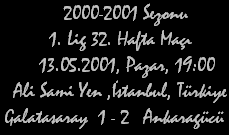 2000-2001 Sezonu
1. Lig 32. Hafta Maçı
13.05.2001, Pazar, 19:00
Ali Sami Yen ,İstanbul, Türkiye
Galatasaray 1 - 2 Ankaragücü